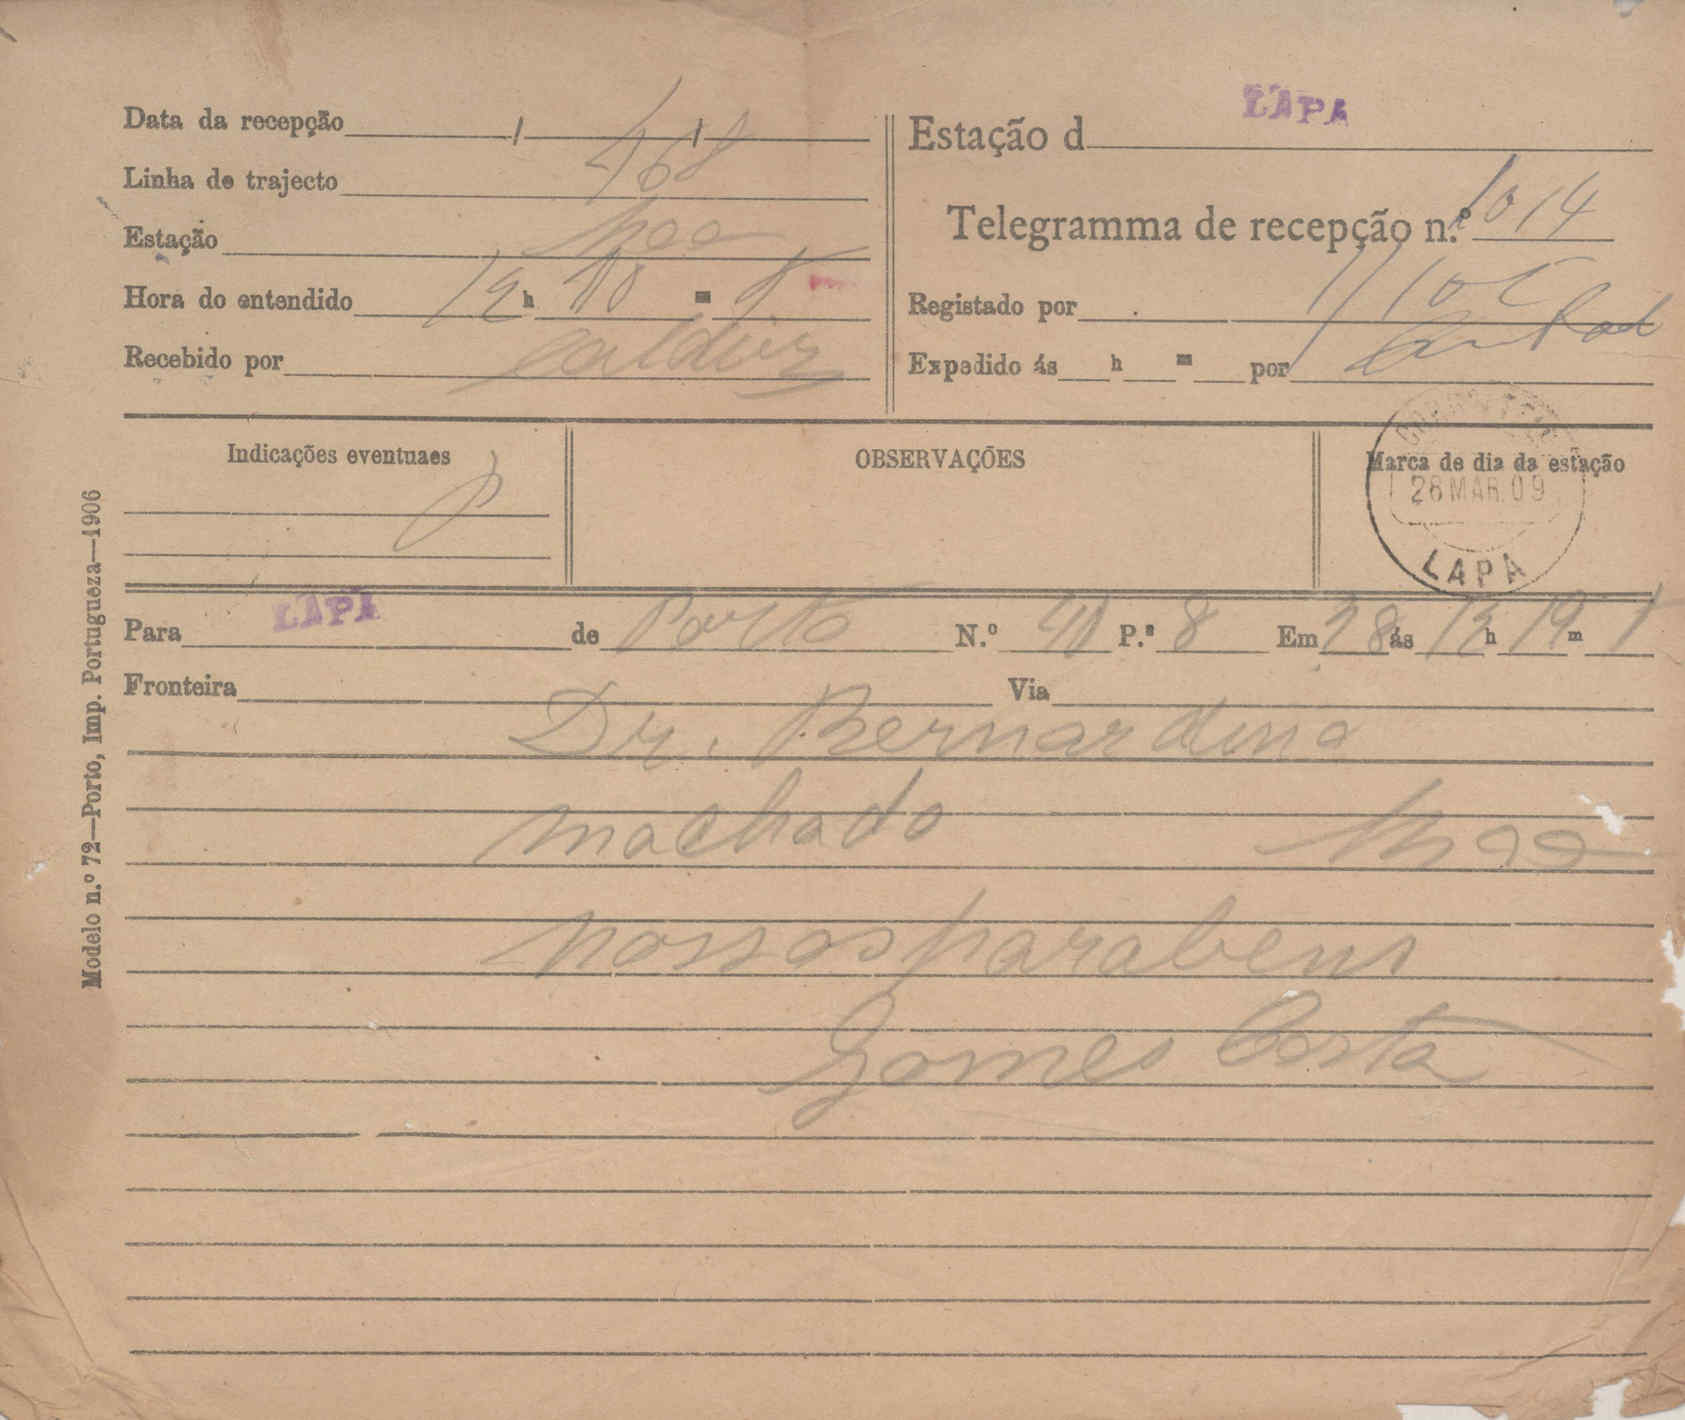 Data da recepção / /
Linha de trajecto 468
Estação
Hora do entendido 12 h 40 m
Recebido por
LAPA
Estação d
Telegramma de recepção n.º 1014
Registado por
Expedido ás h m por
Indicações eventuaes
OBSERVAÇÕES
Marca de dia da estação
28 MAR. 09
LAPA
Para LAPA de Porto N.º P.ª 8 Em 28 ás 12 h 19 m
Fronteira Via
Dr. Bernardino
Machado
Nossos parabens
Gomes Costa
Modelo n.º 72—Porto, Imp. Portugueza—1906